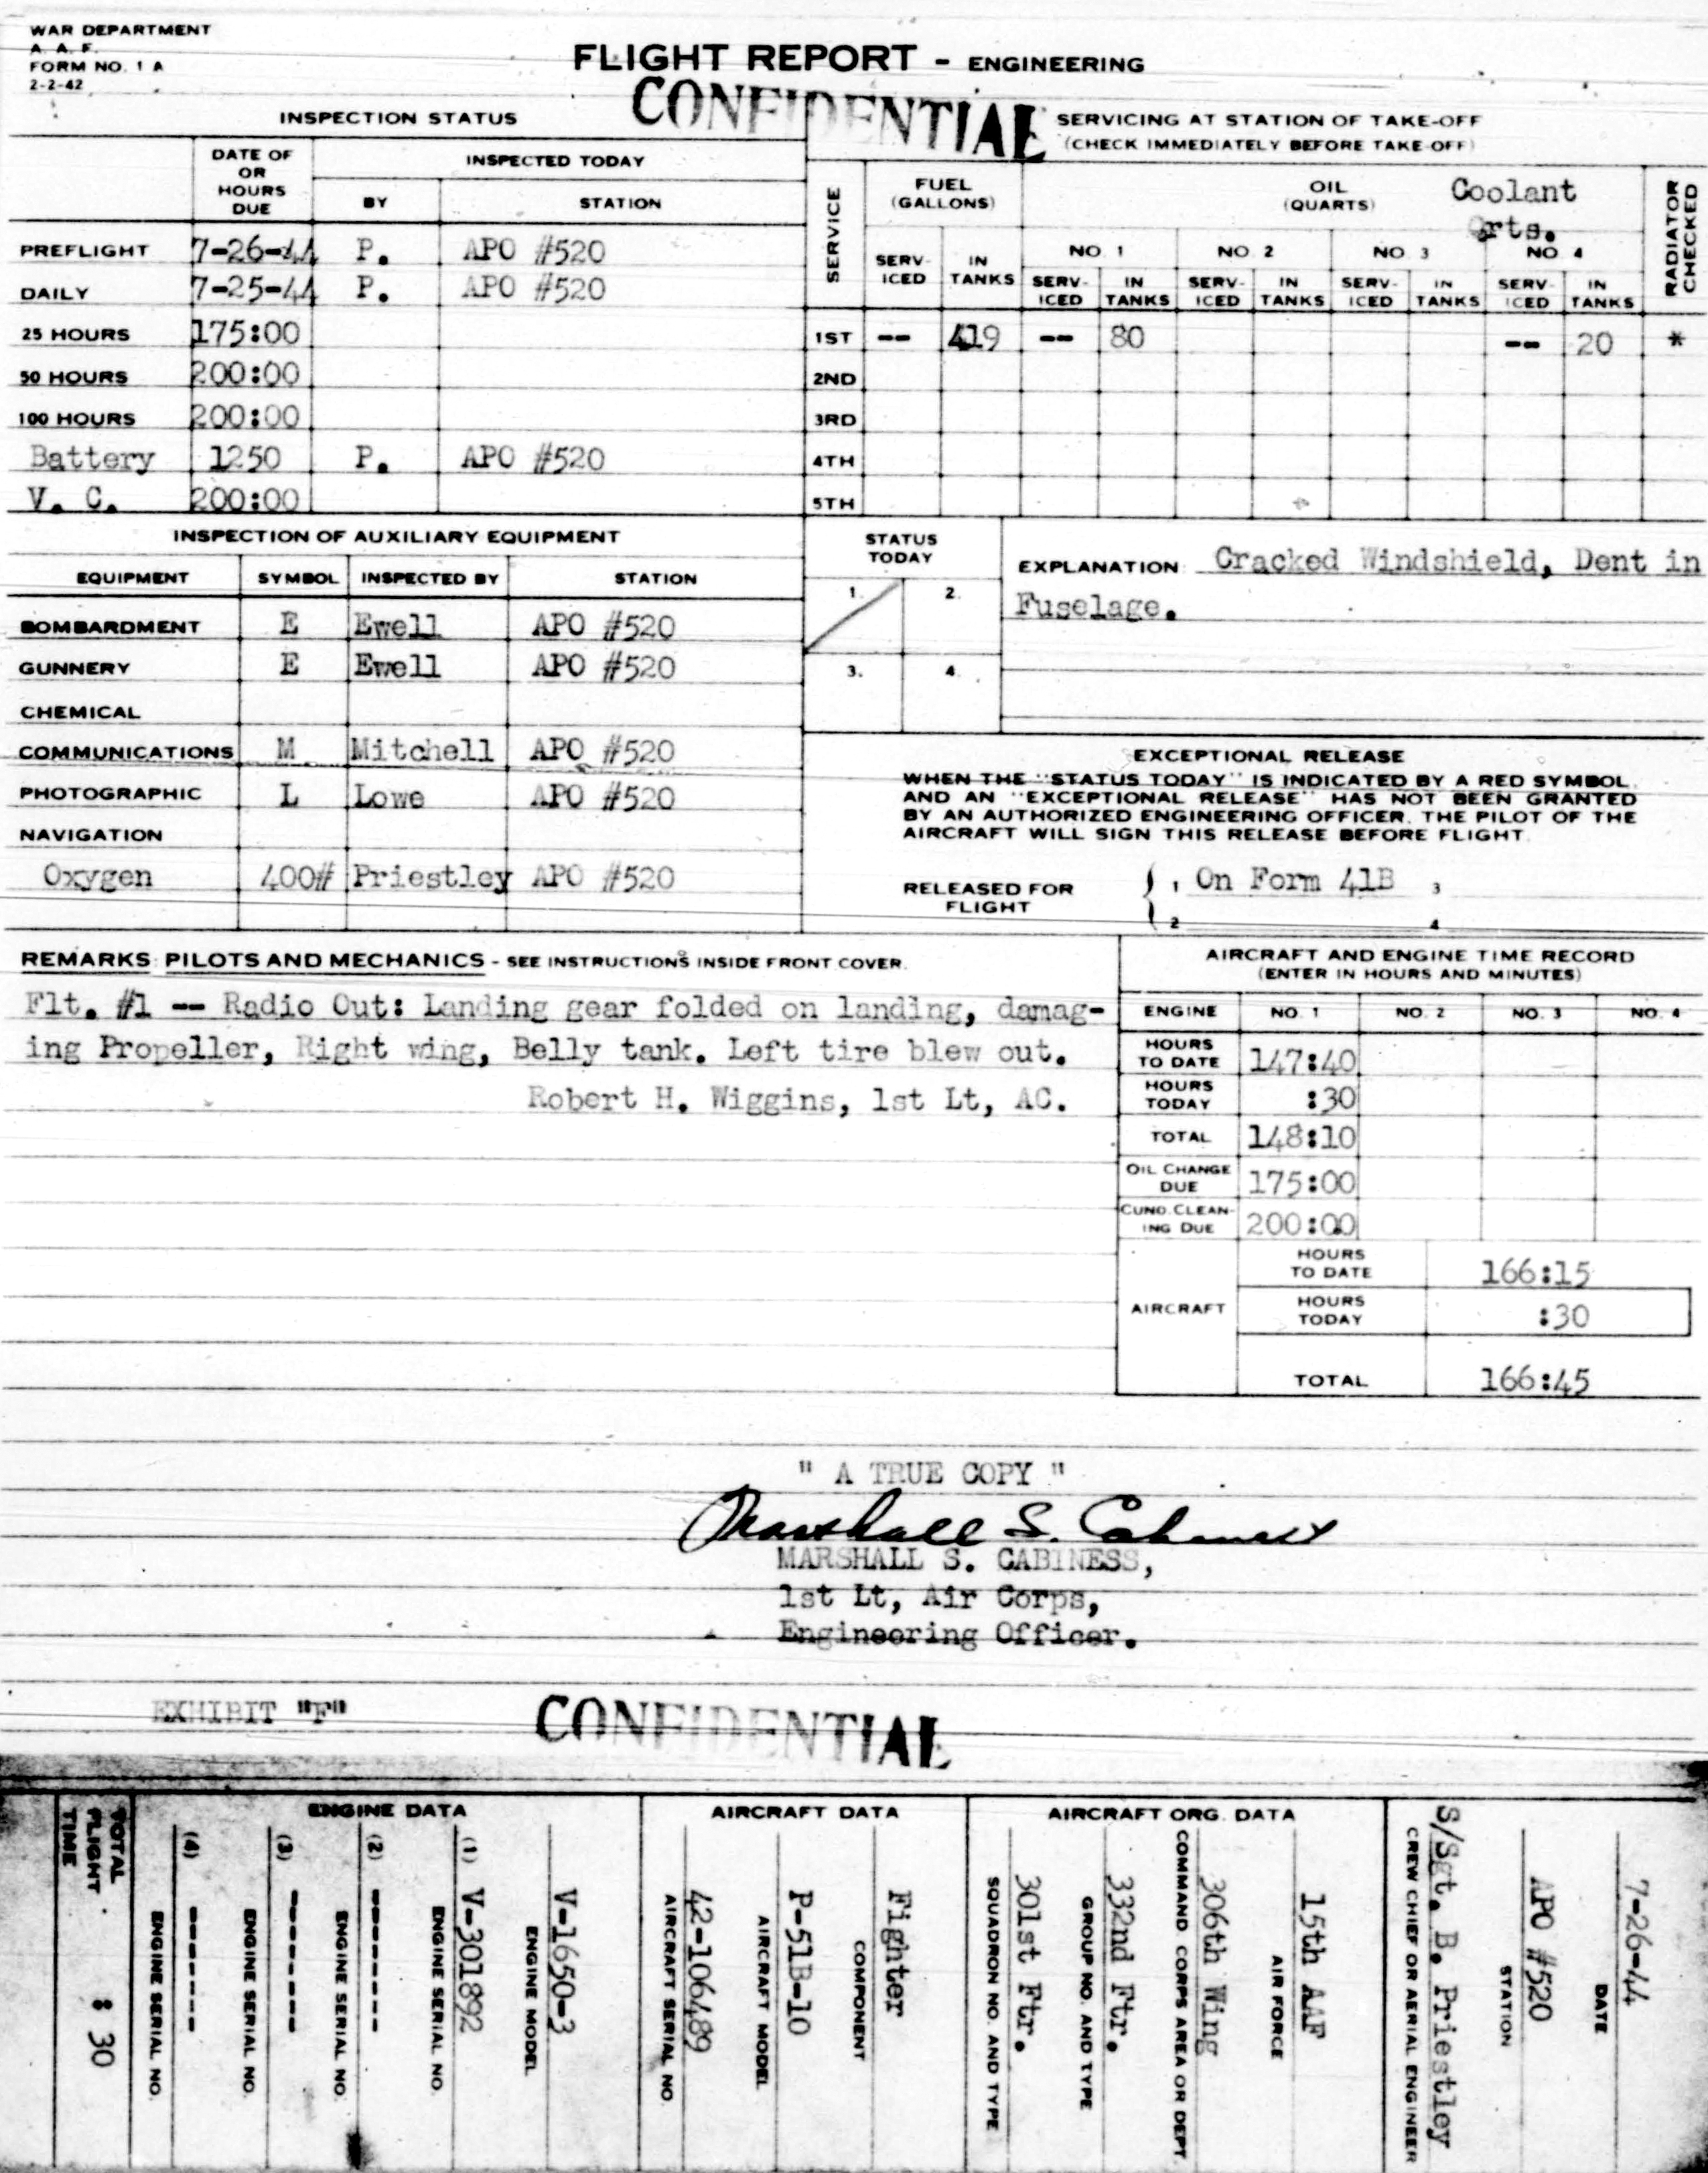 WAR DEPARTMENT
A. A. F.
FORM NO. 1 A
2-2-42
FLIGHT REPORT - ENGINEERING
CONFIDENTIAL
INSPECTION STATUS
DATE OF OR HOURS DUE
INSPECTED TODAY
BY STATION
PREFLIGHT 7-26-44 P. APO #520
DAILY 7-25-44 P. APO #520
25 HOURS 175:00
50 HOURS 200:00
100 HOURS 200:00
Battery 1250 P. APO #520
V. C. 200:00
SERVICING AT STATION OF TAKE-OFF
(CHECK IMMEDIATELY BEFORE TAKE-OFF)
SERVICE
FUEL (GALLONS)
OIL (QUARTS)
Coolant
Qrts.
RADIATOR CHECKED
NO. 1 NO. 2 NO. 3 NO. 4
SERV-ICED IN TANKS SERV-ICED IN TANKS SERV-ICED IN TANKS SERV-ICED IN TANKS SERV-ICED IN TANKS
1ST -- 419 -- 80 -- 20 *
2ND
3RD
4TH
5TH
INSPECTION OF AUXILIARY EQUIPMENT
EQUIPMENT SYMBOL INSPECTED BY STATION
BOMBARDMENT E Ewell APO #520
GUNNERY E Ewell APO #520
CHEMICAL
COMMUNICATIONS M Mitchell APO #520
PHOTOGRAPHIC L Lowe APO #520
NAVIGATION
Oxygen 400# Priestley APO #520
STATUS TODAY
1. 2.
3. 4.
EXPLANATION: Cracked Windshield, Dent in
Fuselage.
EXCEPTIONAL RELEASE
WHEN THE "STATUS TODAY" IS INDICATED BY A RED SYMBOL,
AND AN "EXCEPTIONAL RELEASE" HAS NOT BEEN GRANTED
BY AN AUTHORIZED ENGINEERING OFFICER, THE PILOT OF THE
AIRCRAFT WILL SIGN THIS RELEASE BEFORE FLIGHT.
RELEASED FOR FLIGHT
1 On Form 41B 3
2 4
REMARKS: PILOTS AND MECHANICS - SEE INSTRUCTIONS INSIDE FRONT COVER.
Flt. #1 -- Radio Out: Landing gear folded on landing, damag-
ing Propeller, Right wing, Belly tank. Left tire blew out.
Robert H. Wiggins, 1st Lt, AC.
AIRCRAFT AND ENGINE TIME RECORD
(ENTER IN HOURS AND MINUTES)
ENGINE NO. 1 NO. 2 NO. 3 NO. 4
HOURS TO DATE 147:40
HOURS TODAY :30
TOTAL 148:10
OIL CHANGE DUE 175:00
CUNO. CLEAN-ING DUE 200:00
AIRCRAFT
HOURS TO DATE 166:15
HOURS TODAY :30
TOTAL 166:45
" A TRUE COPY "
Marshall S. Cabiness
MARSHALL S. CABINESS,
1st Lt, Air Corps,
Engineering Officer.
EXHIBIT "F"
CONFIDENTIAL
7-26-44
DATE
APO #520
STATION
S/Sgt. B. Priestley
CREW CHIEF OR AERIAL ENGINEER
AIRCRAFT ORG. DATA
15th AAF
AIR FORCE
306th Wing
COMMAND CORPS AREA OR DEPT.
332nd Ftr.
GROUP NO. AND TYPE
301st Ftr.
SQUADRON NO. AND TYPE
AIRCRAFT DATA
Fighter
COMPONENT
P-51B-10
AIRCRAFT MODEL
42-106489
AIRCRAFT SERIAL NO.
ENGINE DATA
V-1650-3
ENGINE MODEL
(1) V-301892
ENGINE SERIAL NO.
(2) -------
ENGINE SERIAL NO.
(3) -------
ENGINE SERIAL NO.
(4) -------
ENGINE SERIAL NO.
TOTAL FLIGHT TIME : 30